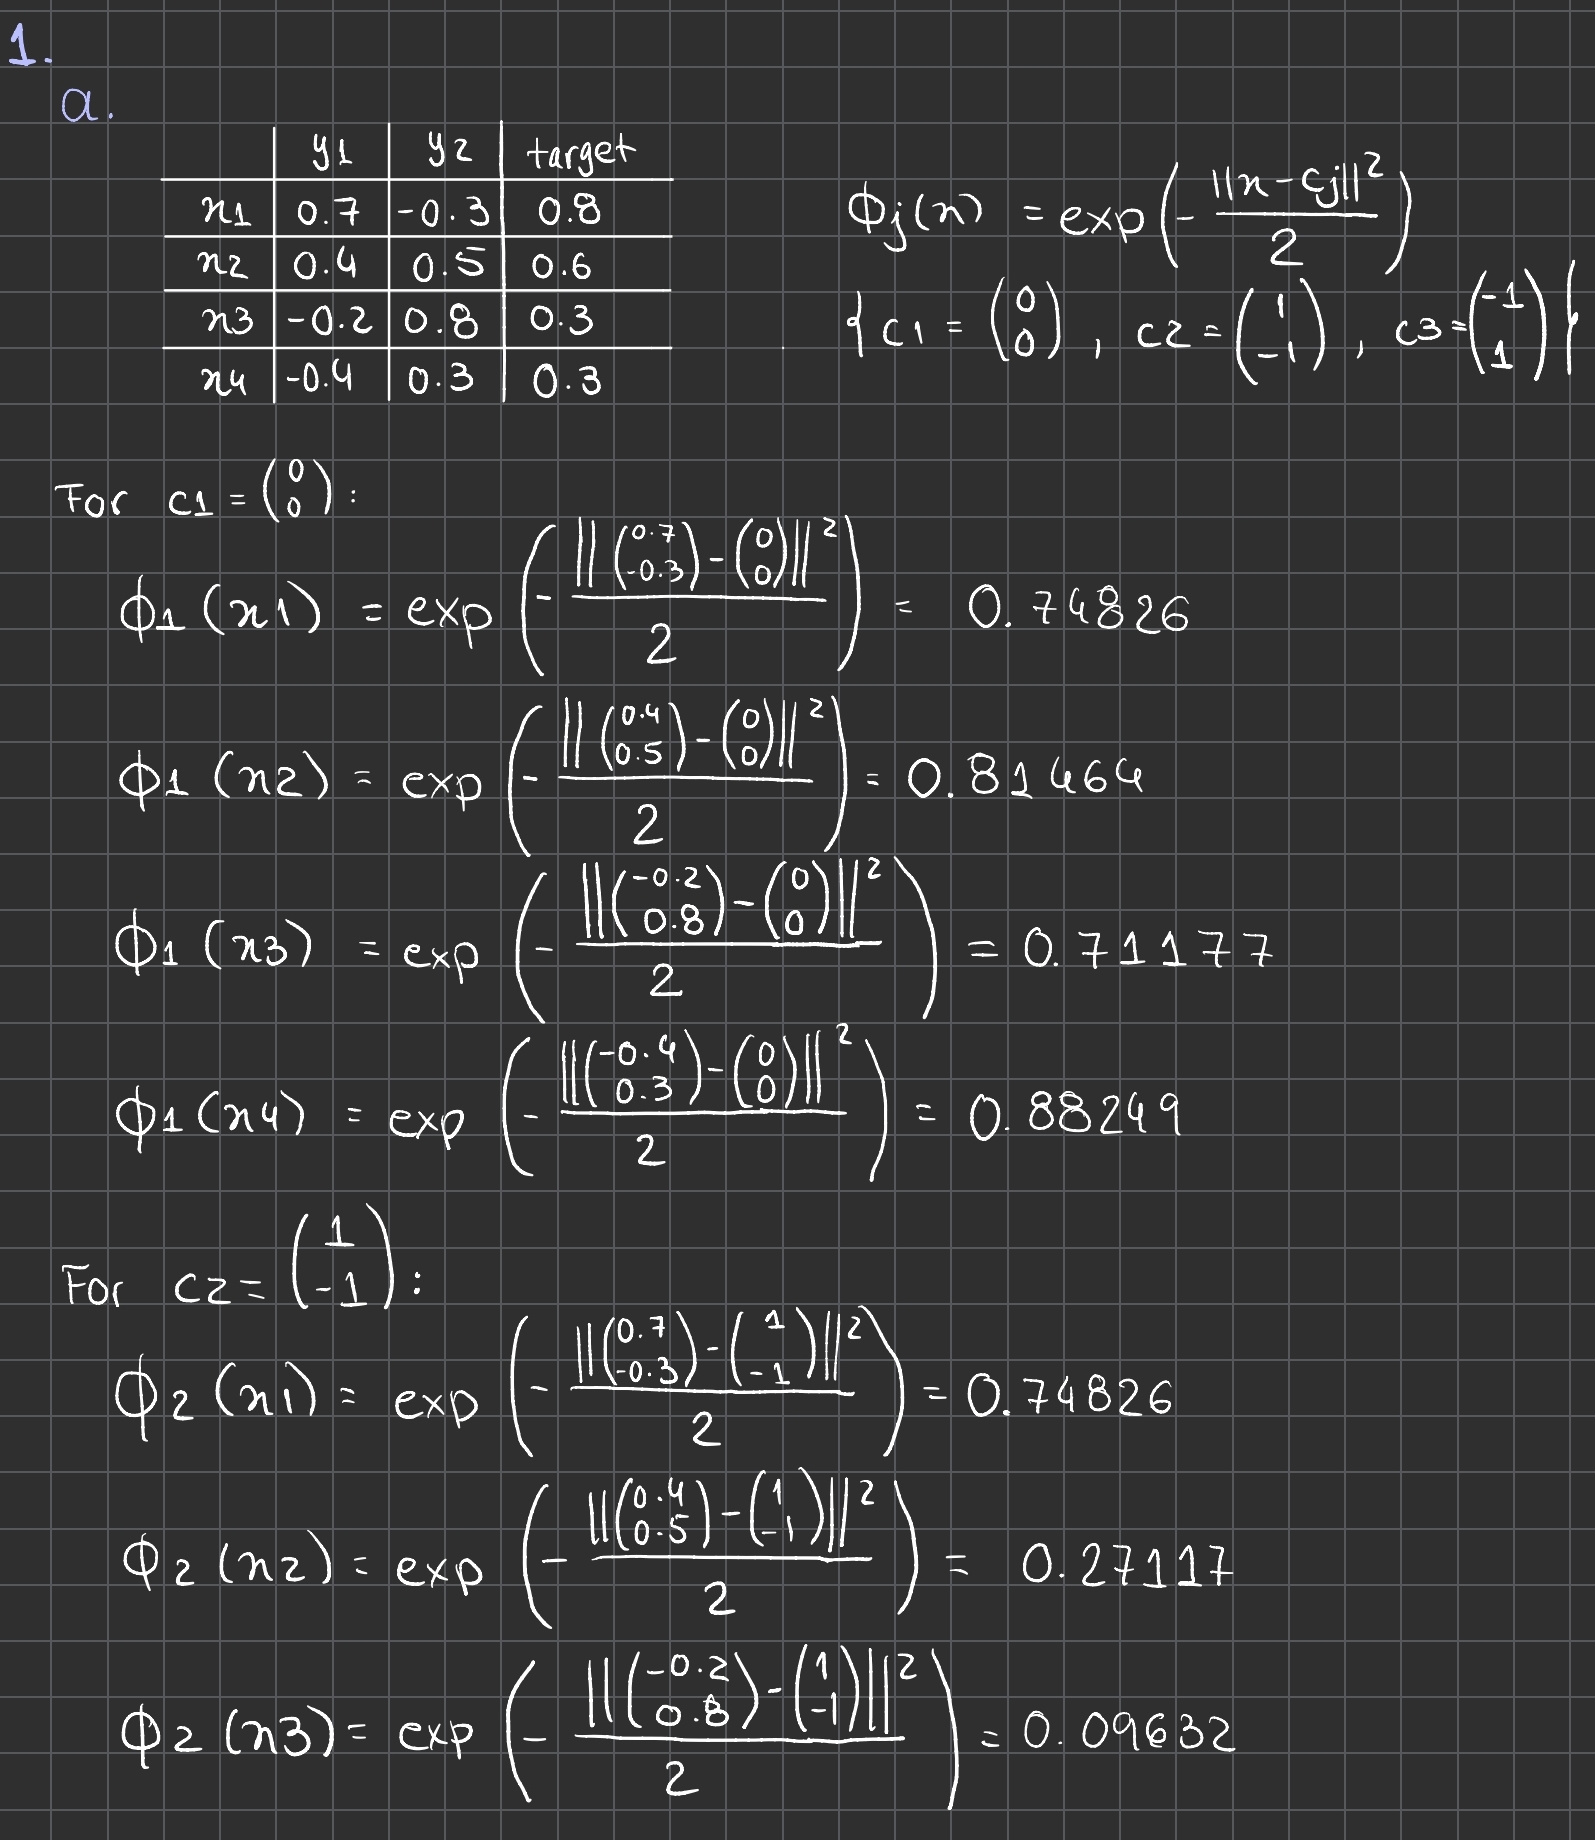 1.
a.
y1 y2 target
x1 0.7 -0.3 0.8
x2 0.4 0.5 0.6
x3 -0.2 0.8 0.3
x4 -0.4 0.3 0.3
ϕj(x) = exp(- ||x-cj||² / 2)
{ c1 = (0 0), c2 = (1 -1), c3 = (-1 1) }
For c1 = (0 0) :
ϕ1 (x1) = exp (- ||(0.7 -0.3) - (0 0)||² / 2) = 0.74826
ϕ1 (x2) = exp (- ||(0.4 0.5) - (0 0)||² / 2) = 0.81464
ϕ1 (x3) = exp (- ||(-0.2 0.8) - (0 0)||² / 2) = 0.71177
ϕ1 (x4) = exp (- ||(-0.4 0.3) - (0 0)||² / 2) = 0.88249
For c2 = (1 -1) :
ϕ2 (x1) = exp (- ||(0.7 -0.3) - (1 -1)||² / 2) = 0.74826
ϕ2 (x2) = exp (- ||(0.4 0.5) - (1 -1)||² / 2) = 0.27117
ϕ2 (x3) = exp (- ||(-0.2 0.8) - (1 -1)||² / 2) = 0.09632